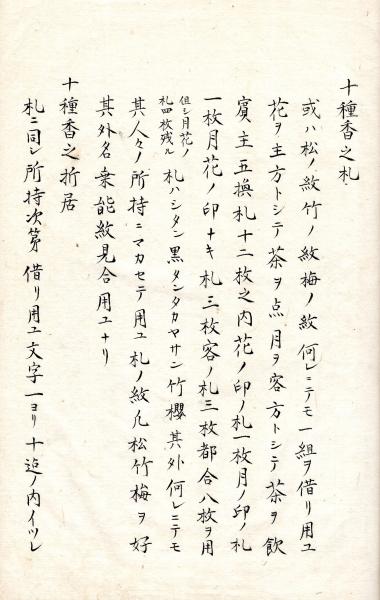 十種香之札
或ハ松ノ紋竹ノ紋梅ノ紋何レニテモ一組ヲ借リ用ユ
花ヲ主方トシテ茶ヲ点月ヲ客方トシテ茶ヲ飲
賓主五換札十二枚之内花ノ印ノ札一枚月ノ印ノ札
一枚月花ノ印ナキ札三枚客ノ札三枚都合八枚ヲ用
但シ月花ノ
札四枚残ル
札ハシタン黒タンタカヤサン竹櫻其外何レニテモ
其人々ノ所持ニマカセテ用ユ札ノ紋凡松竹梅ヲ好
其外名乗能紋見合用ユナリ
十種香之折居
札ニ同シ所持次第借リ用ユ文字一ヨリ十迠ノ内イツレ